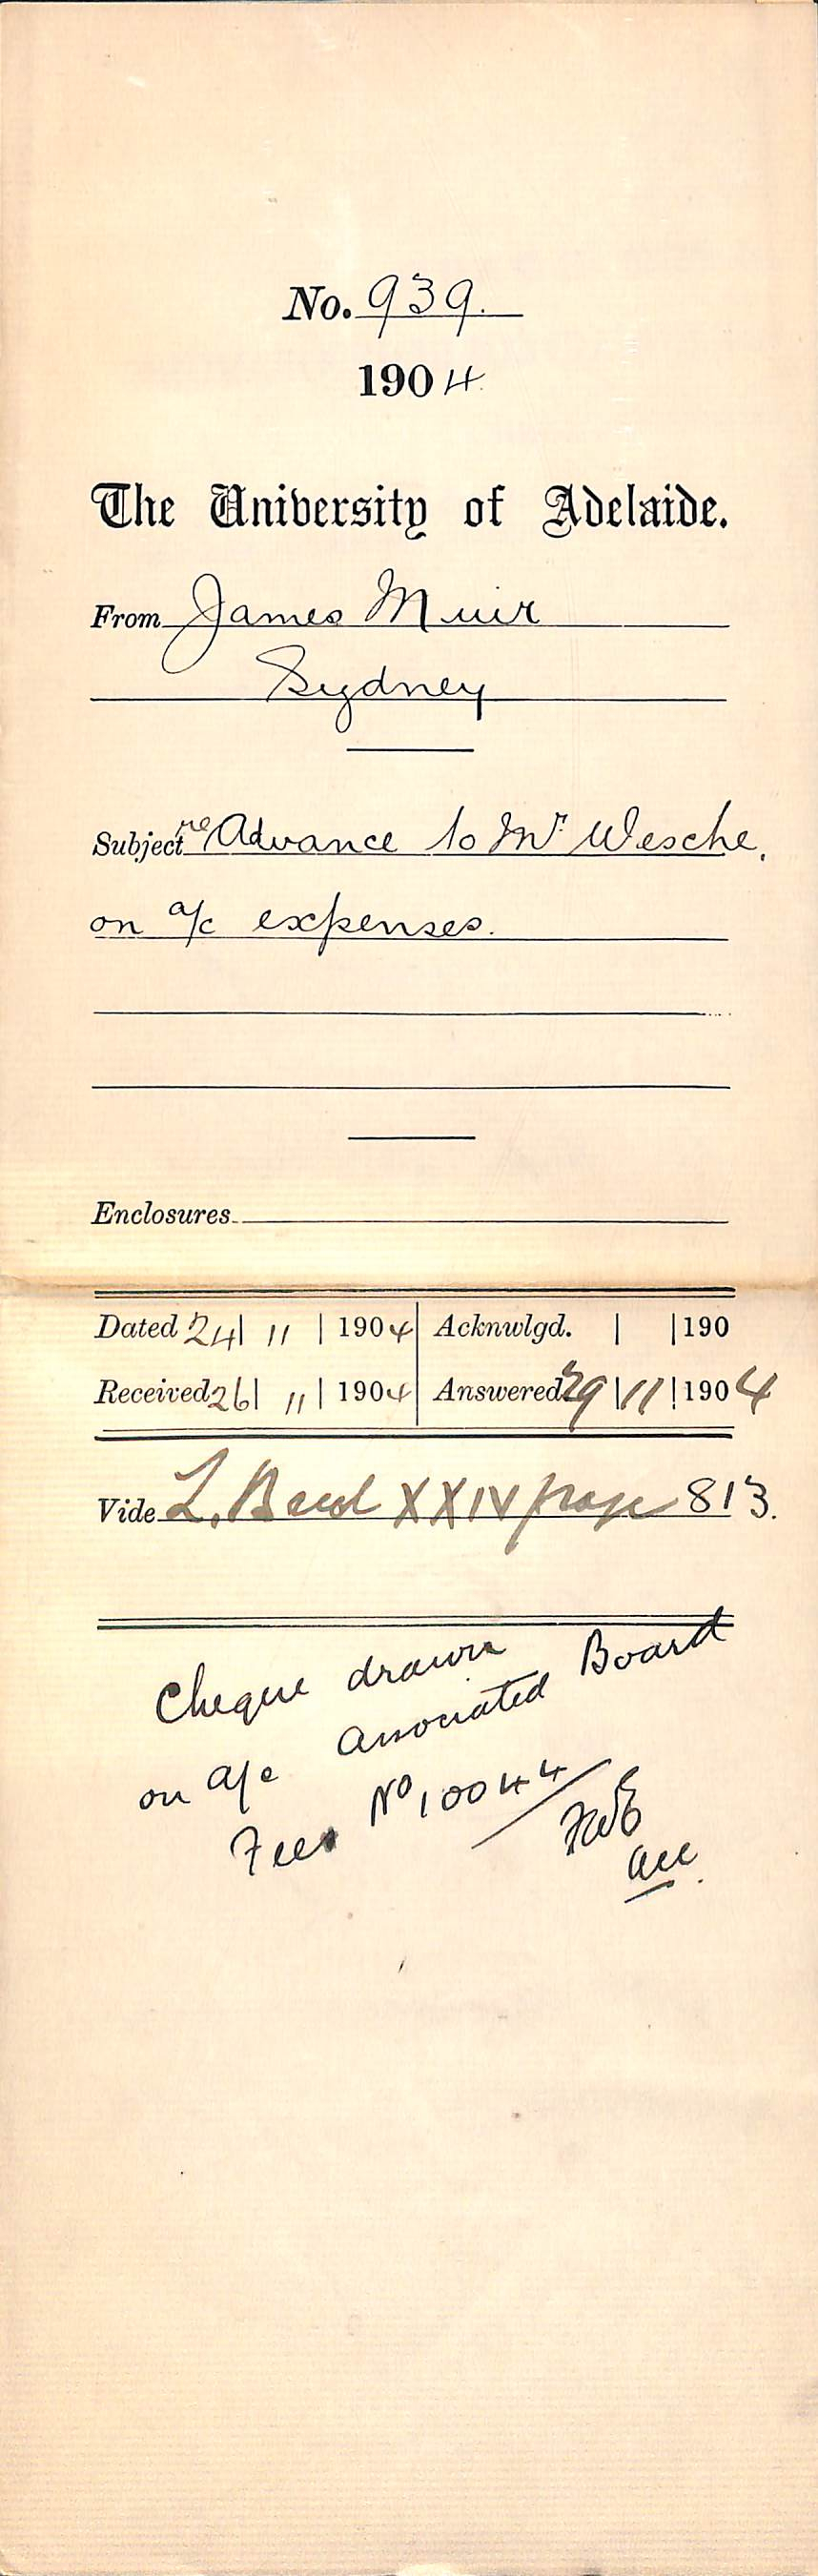 No. 939.
1904
The University of Adelaide.
From James Muir
Sydney
Subject re Advance to Mr Wesche,
on a/c expenses.
Enclosures
Dated 24| 11 | 1904 Acknwlgd. | |190
Received 26| 11 | 1904 Answered 29 |11| 1904
Vide L. XXIV page 813.
Cheque drawn
on a/c Associated Board
Fees No 10044